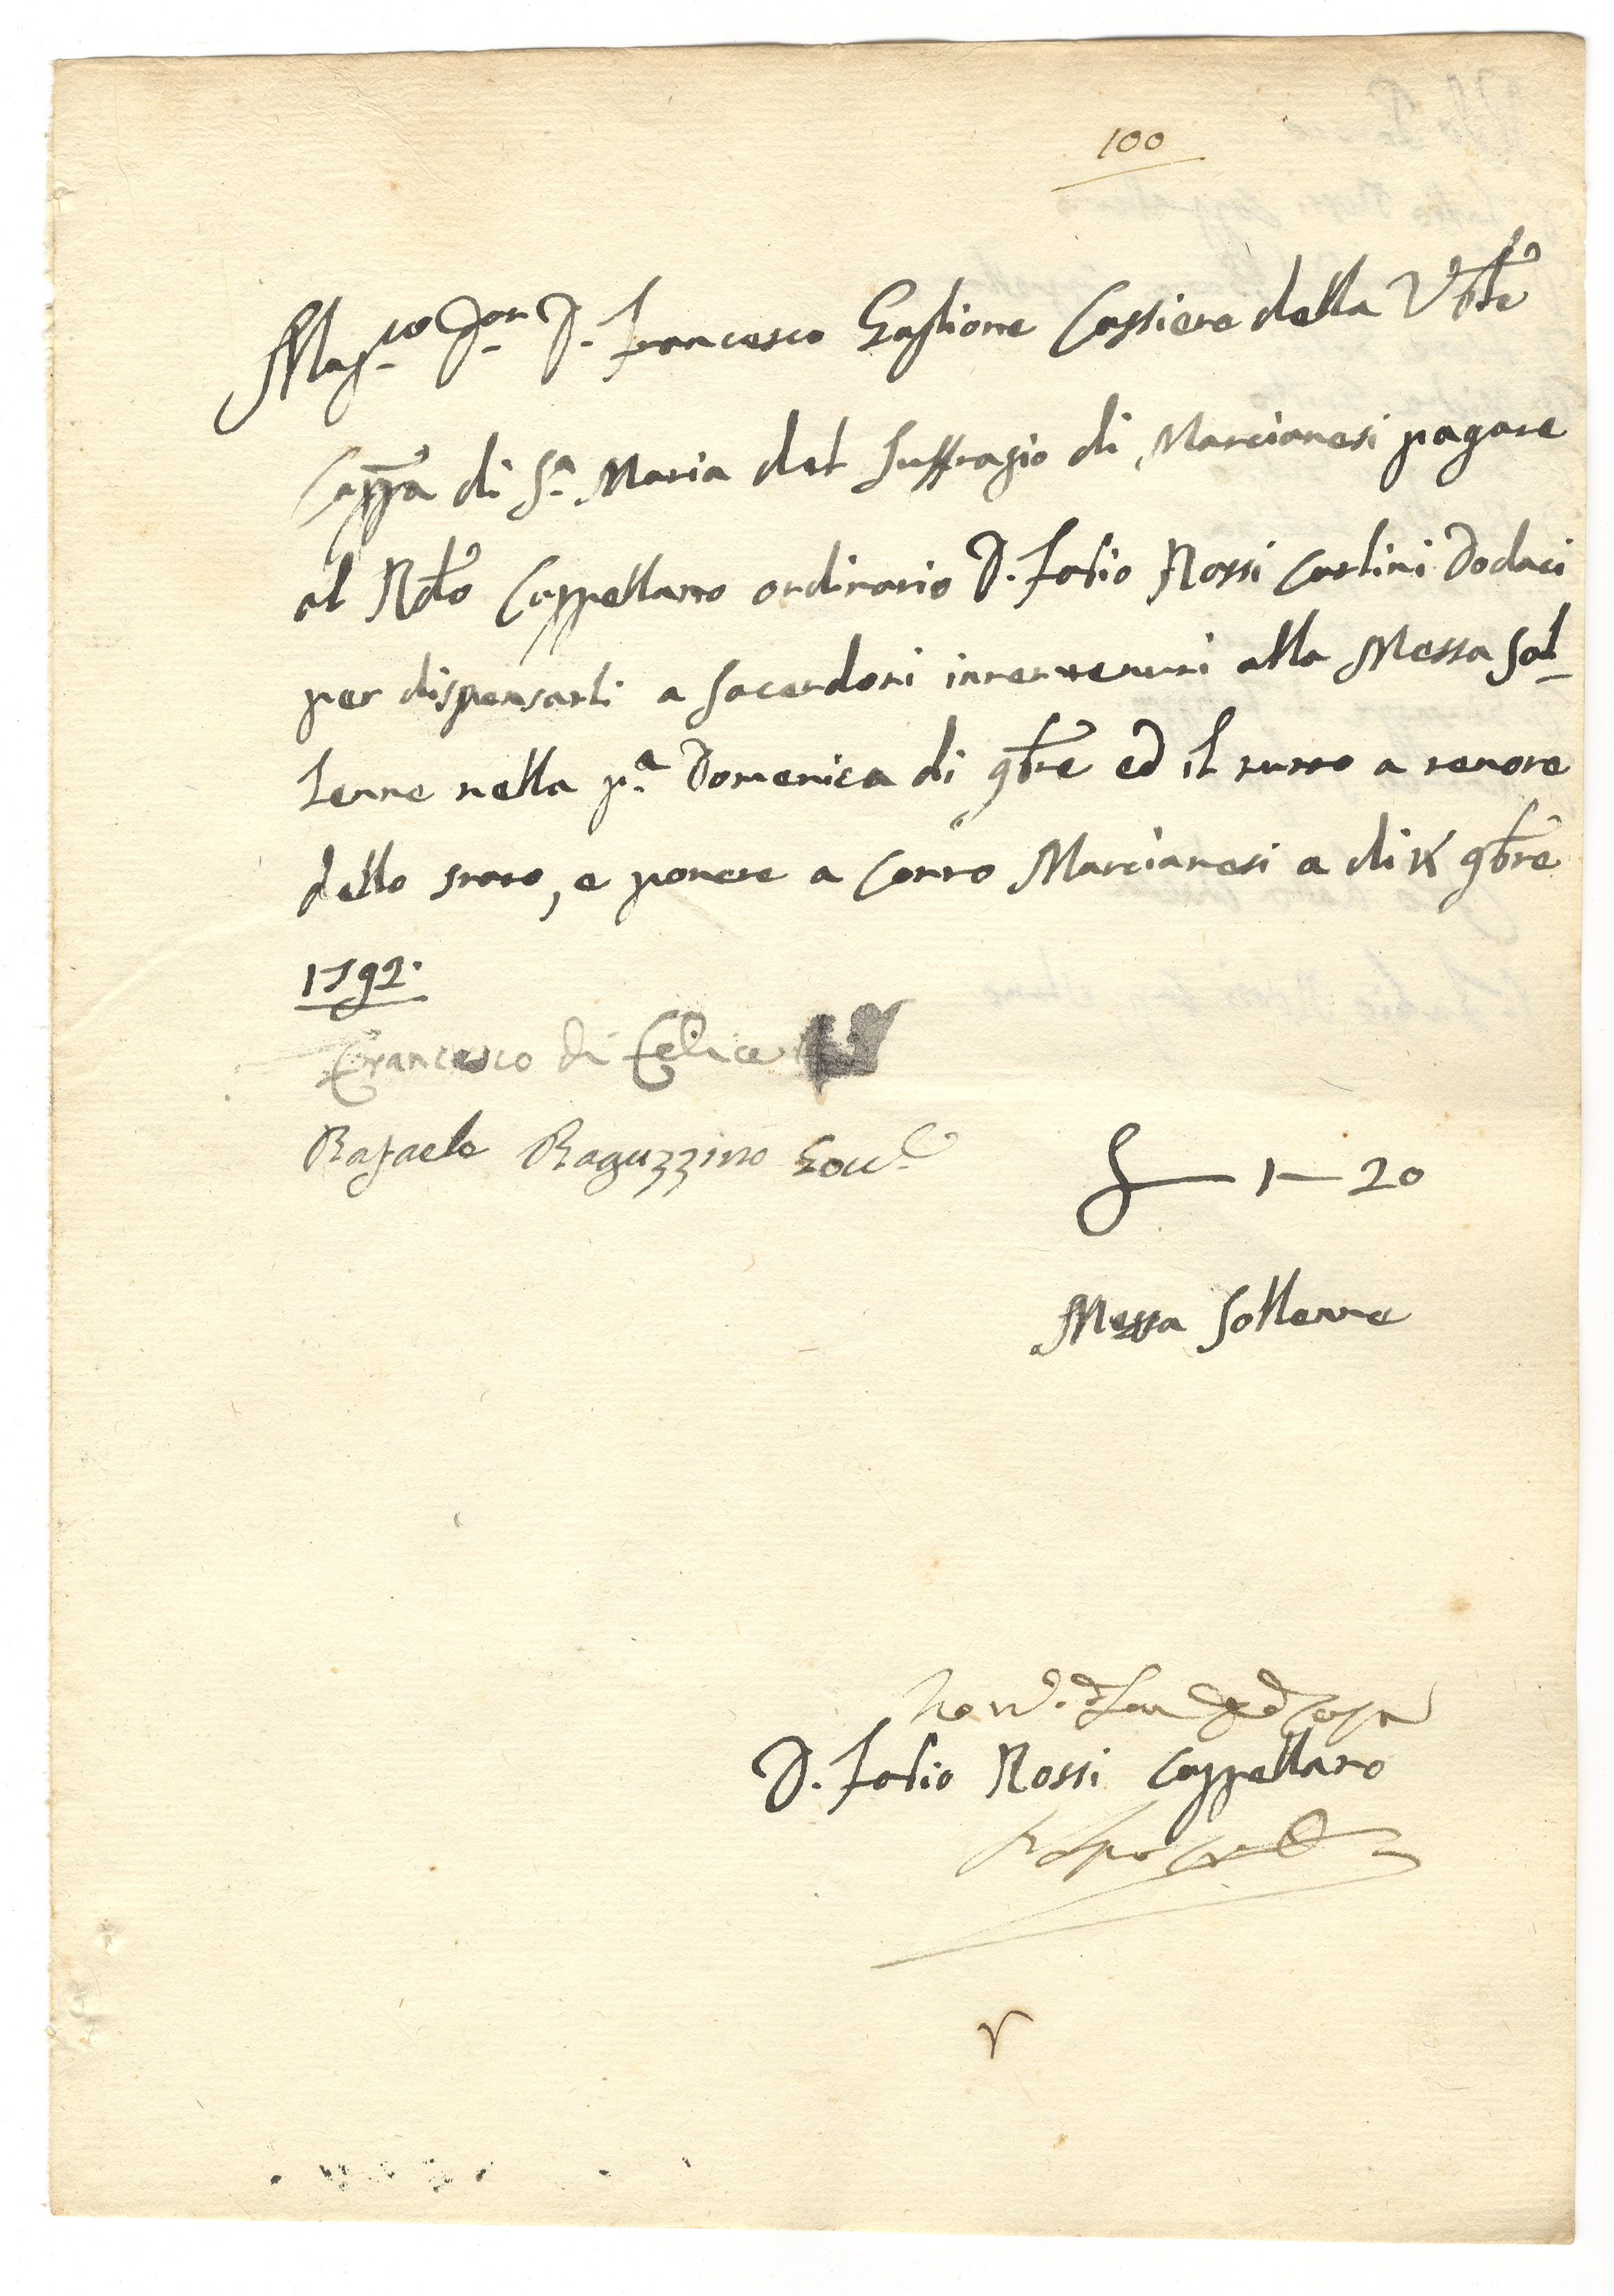 100
Mag.co Sor D. Francesco Gaglione Cassiere della Vble
Cappa di Sa. Maria del Suffragio di Marcianesi pagate
al Rdo Cappellano ordinario D. Fabio Rossi Carlini Dodeci
per dispensarli a Sacerdoti intervenuti alla Messa Sol-
lenne nella pa. Domenica di 9bre ed il tutto a tenore
dello stato, e ponete a conto Marcianesi a di 9bre
1792.
Francesco di Felice
Rafaele Raguzzino Gov.e
D — 1 — 20
Messa Sollenne
D. Fabio Rossi Cappellano